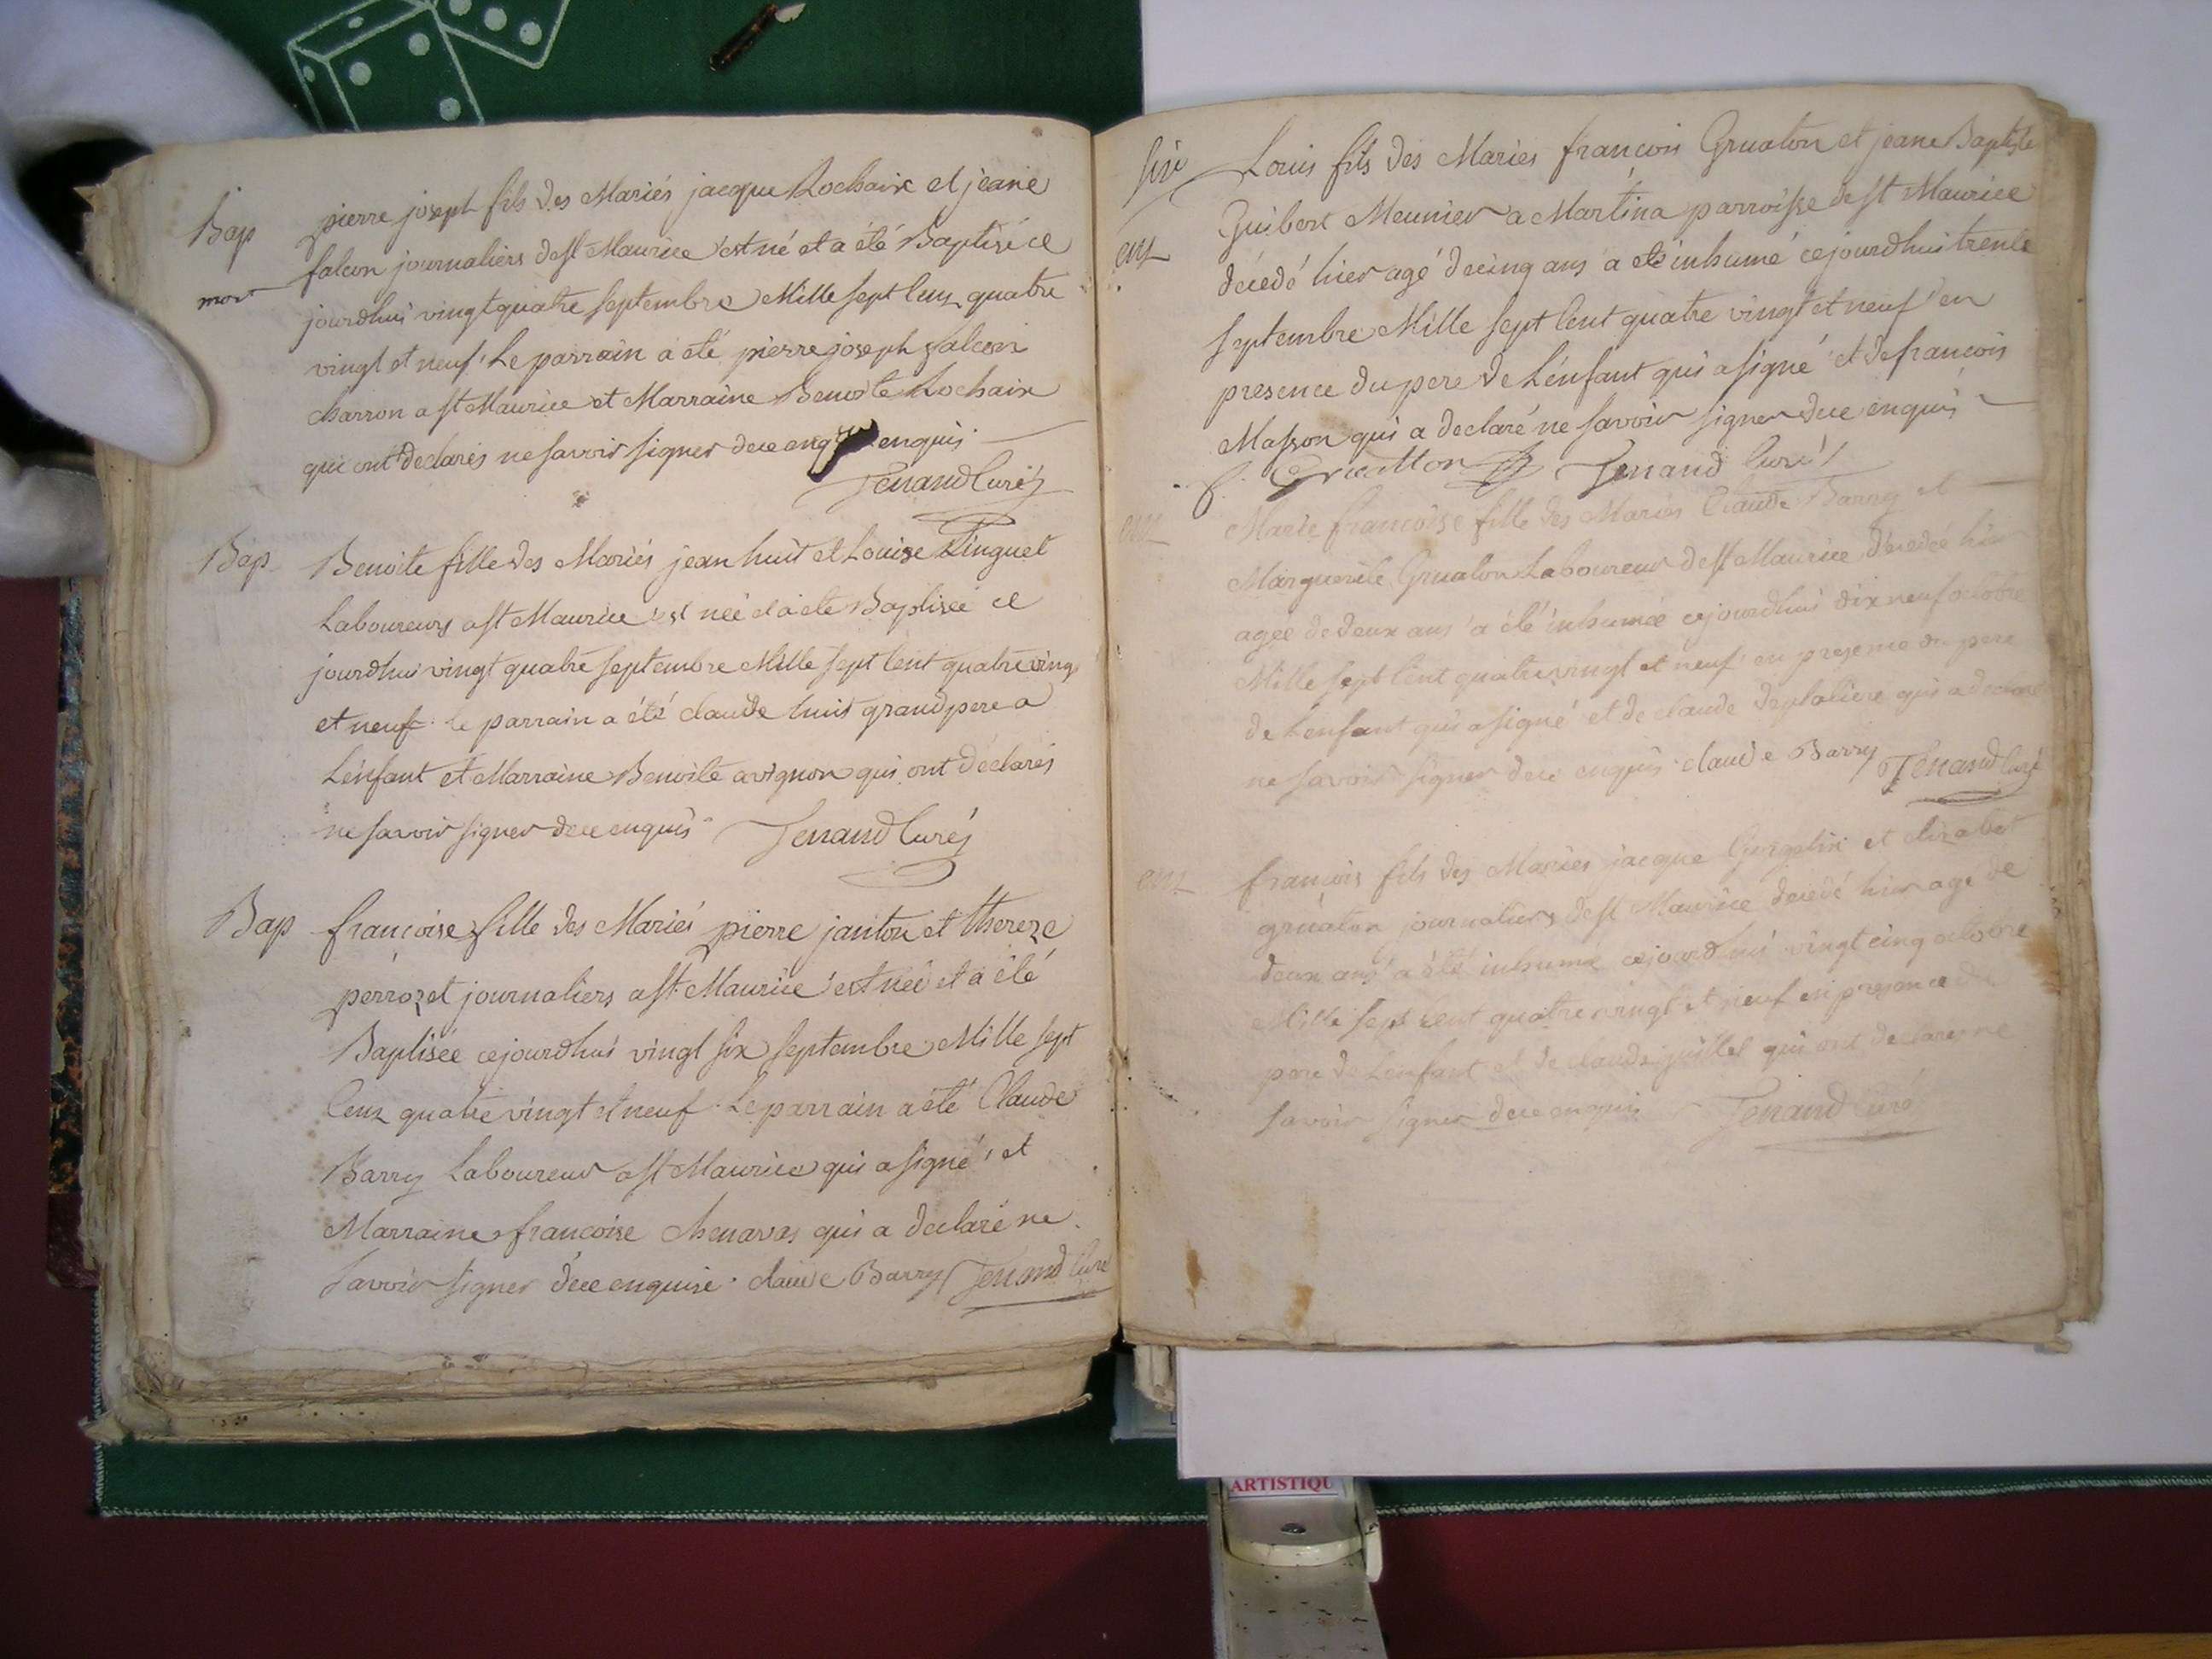 Bap
mort
pierre joseph fils des Mariés jacque Rochaix et jeane
falcon journaliers de st Maurice est né et a été Baptisé ce
jourdhui vingt quatre septembre Mille sept Cens quatre
vingt et neuf. Le parrain a été pierre joseph falcon
charron a st Maurice et Marraine Benoite Rochaix
qui ont declarés ne savoir signer de ce enquis
Tenand Curé
Bap
Benoite fille des Mariés jean huit et Louise Pinguet
Laboureurs a st Maurice est née et a eté Baptisée ce
jourdhui vingt quatre septembre Mille sept Cent quatre ving
et neuf. le parrain a été claude huit grand pere a
L'enfant et Marraine Benoite avignon qui ont déclarés
ne savoir signer de ce enquis Tenand Curé
Bap
francoise fille des Mariés pierre janton et thereze
perrozet journaliers a st Maurice est née et a été
Baptisée cejourdhui vingt six septembre Mille sept
Cens quatre vingt et neuf. Le parrain a été Claude
Barry Laboureur a st Maurice qui a signé, et
Marraine francoise chenavas qui a declaré ne
savoir signer de ce enquise. claude Barry Tenand Curé
six
Louis fils des Mariés francois Gruaton et jeane Baptiste
ent
Guibert Meunier a Martina parroisse de st Maurice
décedé hier agé de cinq ans a eté inhumé cejourdhui trente
septembre Mille sept Cent quatre vingt et neuf en
presence du pere de L'enfant qui a signé et de francois
Masson qui a declaré ne savoir signer de ce enquis
f. Gruatton Tenand Curé
ent
Marie francoise fille des Mariés Claude Barry et
Marguerite Gruaton Laboureur de st Maurice décedée hier
agée de deux ans a été inhumée cejourdhui dix neuf octobre
Mille sept Cent quatre vingt et neuf en presence du pere
de L'enfant qui a signé et de claude qui a declaré
ne savoir signer de ce enquis claude Barry Tenand Curé
ent
francois fils des Mariés jacque et elizabet
gruaton journaliers de st Maurice décedé hier agé de
deux ans a été inhumé cejourdhui vingt cinq octobre
Mille sept Cent quatre vingt et neuf en presence du
pere de L'enfant et de claude guillet qui ont declarés ne
savoir signer de ce enquis Tenand Curé
ARTISTIQU